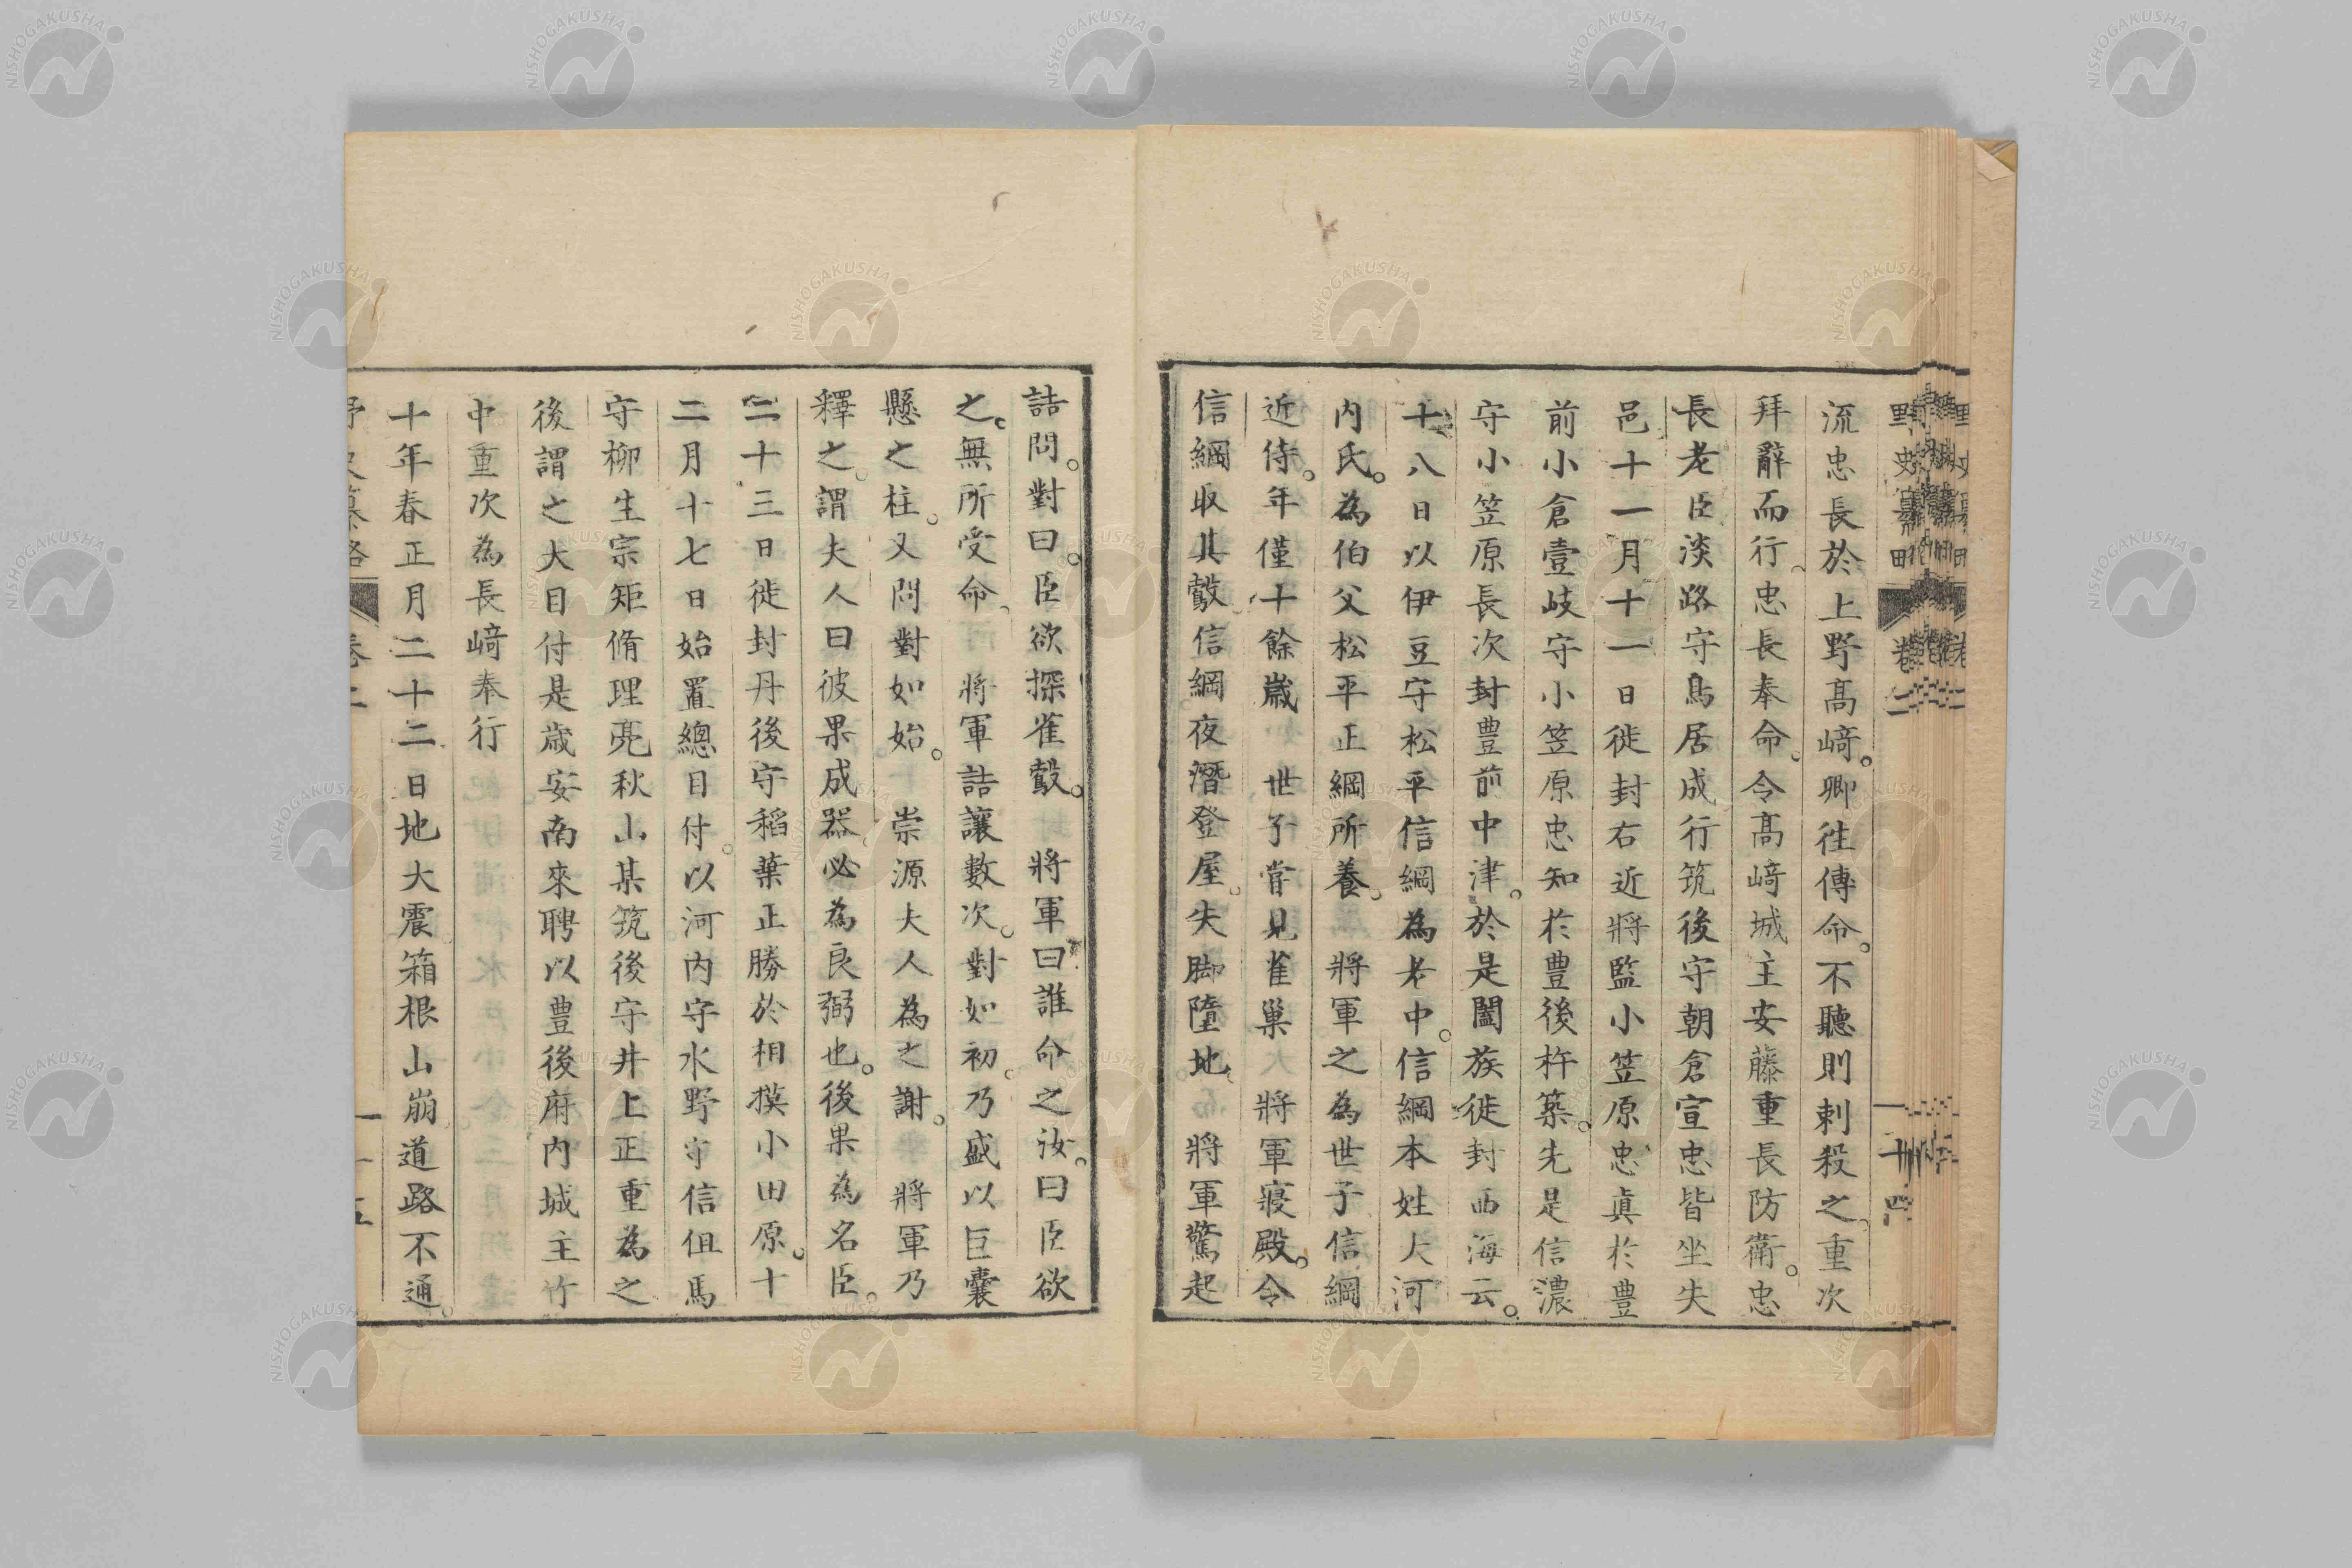 流忠長於上野髙﨑。卿徃傳命。不聽則剌殺之。重次
拜辭而行。忠長奉命。令髙﨑城主安藤重長防衛。忠
長老臣淡路守鳥居成行筑後守朝倉宣忠皆坐失
邑十一月十一日徙封右近將監小笠原忠眞於豊
前小倉壹岐守小笠原忠知於豊後杵築。先是信濃
守小笠原長次封豊前中津。於是闔族徙封西海云。
十八日以伊豆守松平信綱為老中。信綱本姓大河
内氏。為伯父松平正綱所養。 將軍之為世子信綱
近侍。年僅十餘歳 世子甞見雀巢 將軍寢殿。令
信綱取其鷇。信綱夜潛登屋。失脚墮地。 將軍驚起
詰問。對曰。臣欲探雀鷇。 將軍曰誰命之汝。曰臣欲
之。無所受命。 將軍詰讓數次。對如初。乃盛以巨囊
懸之柱。又問對如始。 崇源夫人為之謝。 將軍乃
釋之。謂夫人曰彼果成器。必為良弼也。後果為名臣。
二十三日徙封丹後守稻葉正勝於相摸小田原。十
二月十七日始置總目付。以河内守水野守信但馬
守柳生宗矩脩理亮秋山某筑後守井上正重為之
後謂之大目付是歳安南來聘以豊後府内城主竹
中重次為長﨑奉行
十年春正月二十二日地大震箱根山崩道路不通。
野史纂略 卷二 十五
野史纂 卷二 十四
NISHOGAKUSHA